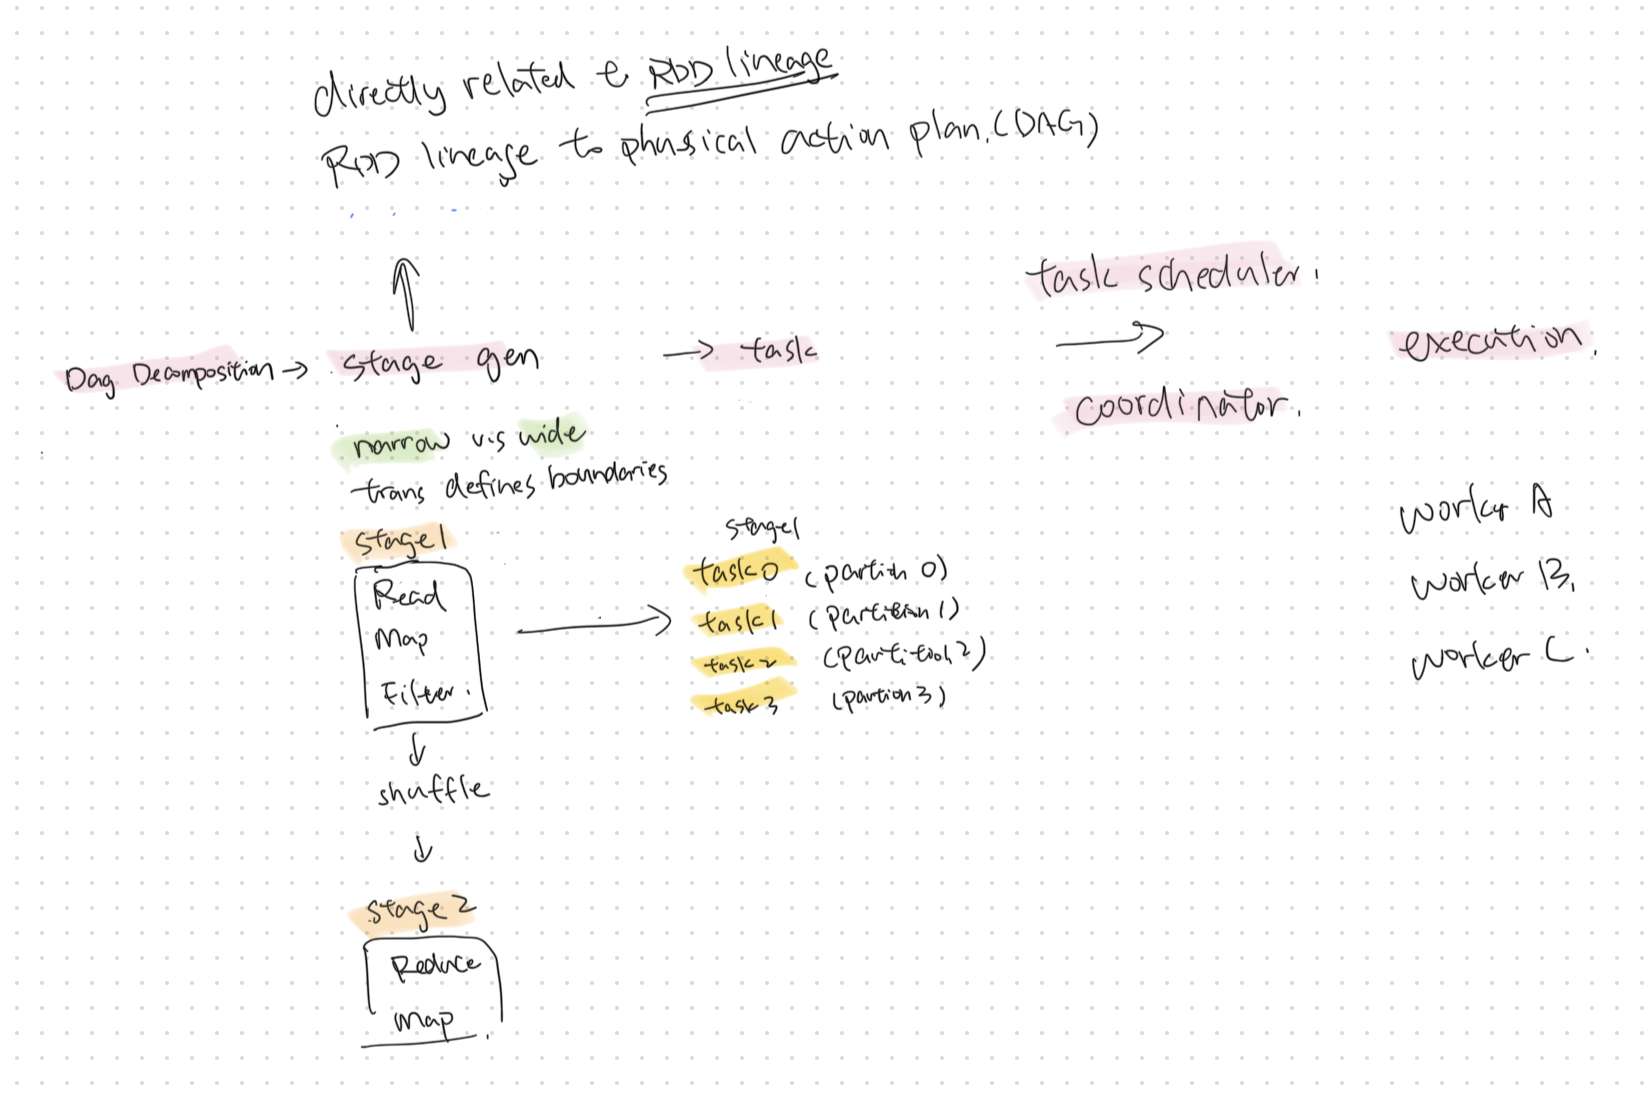 directly related to RDD lineage
RDD lineage to physical action plan. (DAG)
task scheduler.
Dag Decomposition → stage gen → task
execution.
coordinator.
narrow v.s wide
trans defines boundaries
stage1
Read
Map
Filter.
shuffle
stage 2
Reduce
Map
stage1
task0 (partion 0)
task1 (partition 1)
task2 (partition 2)
task3 (partion 3)
worker A
worker B.
worker C.